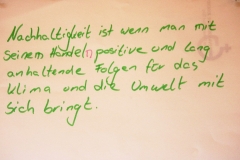 Nachhaltigkeit ist wenn man mit
seinem Handeln positive und lang
anhaltende Folgen für das
Klima und die Umwelt mit
sich bringt.